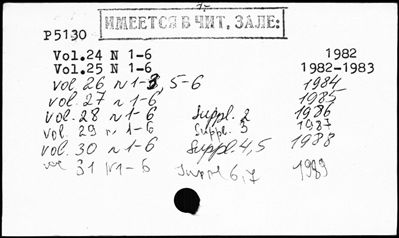 ИМЕЕТСЯ В ЧИТ, ЗАЛЕ:
P5130
Vol.24 N 1-6 1982
Vol.25 N 1-6 1982-1983
vol 26 N 1-3, 5-6 1984
vol. 27 N 1-6 1985
vol. 28 N 1-6 Suppl. 2 1986
vol. 29 N 1-6 Suppl. 3 1987
vol. 30 N 1-6 Suppl. 4,5 1988
vol 31 N 1-6 Suppl 6,7 1989